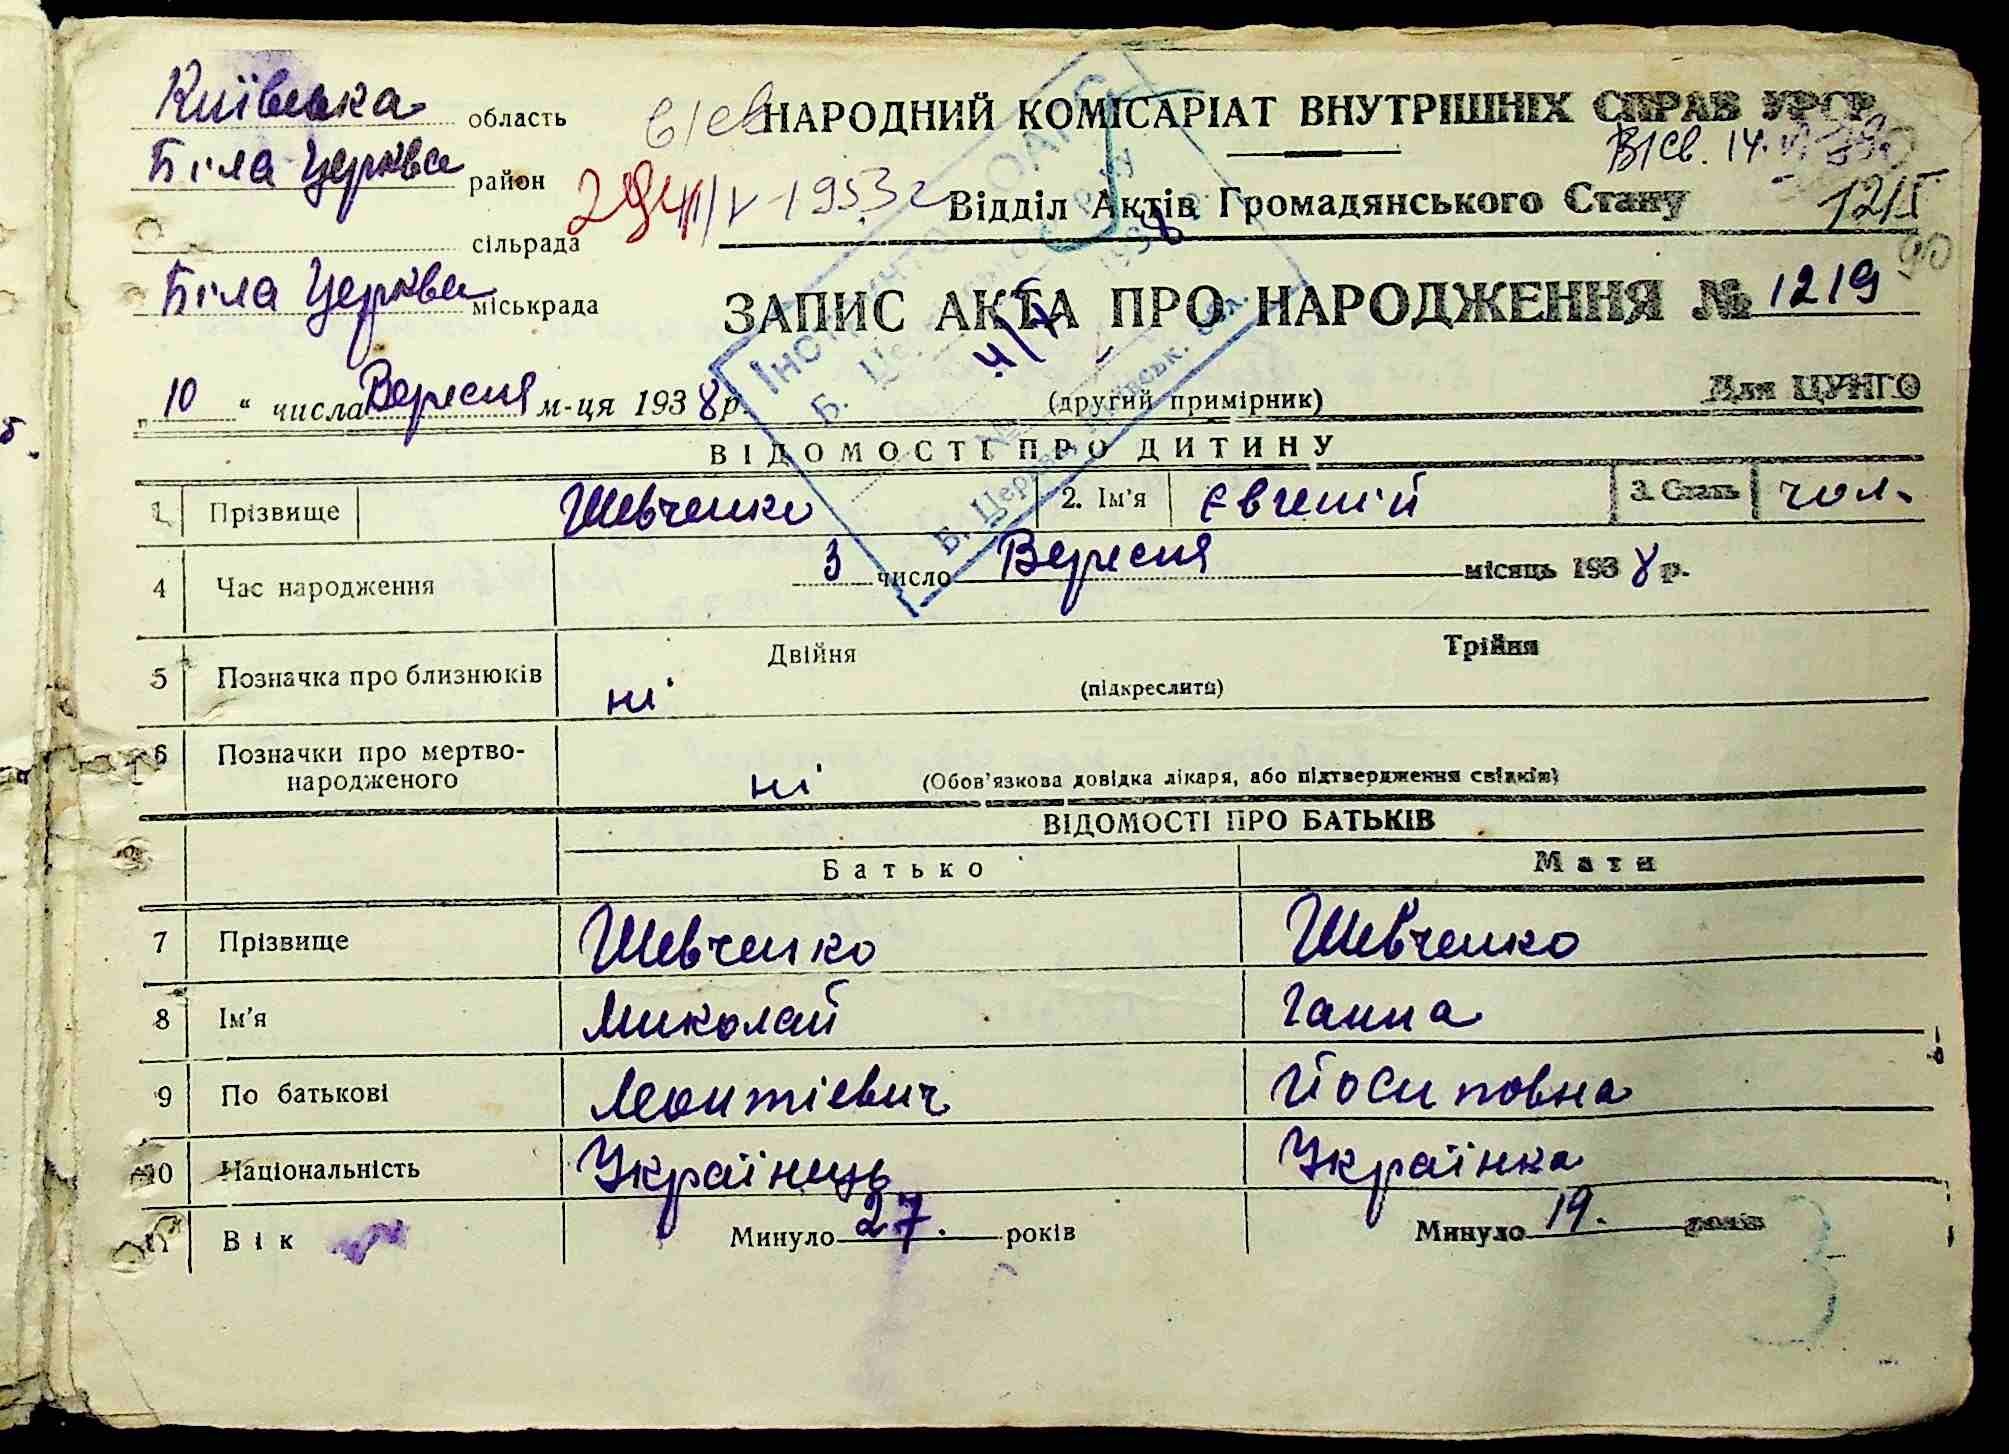 Київська область
Біла Церква район
сільрада
Біла Церква міськрада
НАРОДНИЙ КОМІСАРІАТ ВНУТРІШНІХ СПРАВ УРСР
В/св. 14.
1953 г
12/I
90
Відділ Актів Громадянського Стану
ЗАПИС АКТА ПРО НАРОДЖЕННЯ № 1219
„ 10 “ числа Вересня м-ця 1938 р.
(другий примірник)
Для ЦУНГО
ВІДОМОСТІ ПРО ДИТИНУ
1 Прізвище Шевченко 2. Ім'я Євгеній 3. Стать чол.
4 Час народження 3 число Вересня місяць 1938 р.
5 Позначка про близнюків ні Двійня Трійня
(підкреслити)
6 Позначки про мертво-
народженого ні (Обов'язкова довідка лікаря, або підтвердження свідків)
ВІДОМОСТІ ПРО БАТЬКІВ
Батько Мати
7 Прізвище Шевченко Шевченко
8 Ім'я Миколай Ганна
9 По батькові Леонтієвич Йосиповна
10 Національність Українець Українка
11 Вік Минуло 27. років Минуло 19. років
3